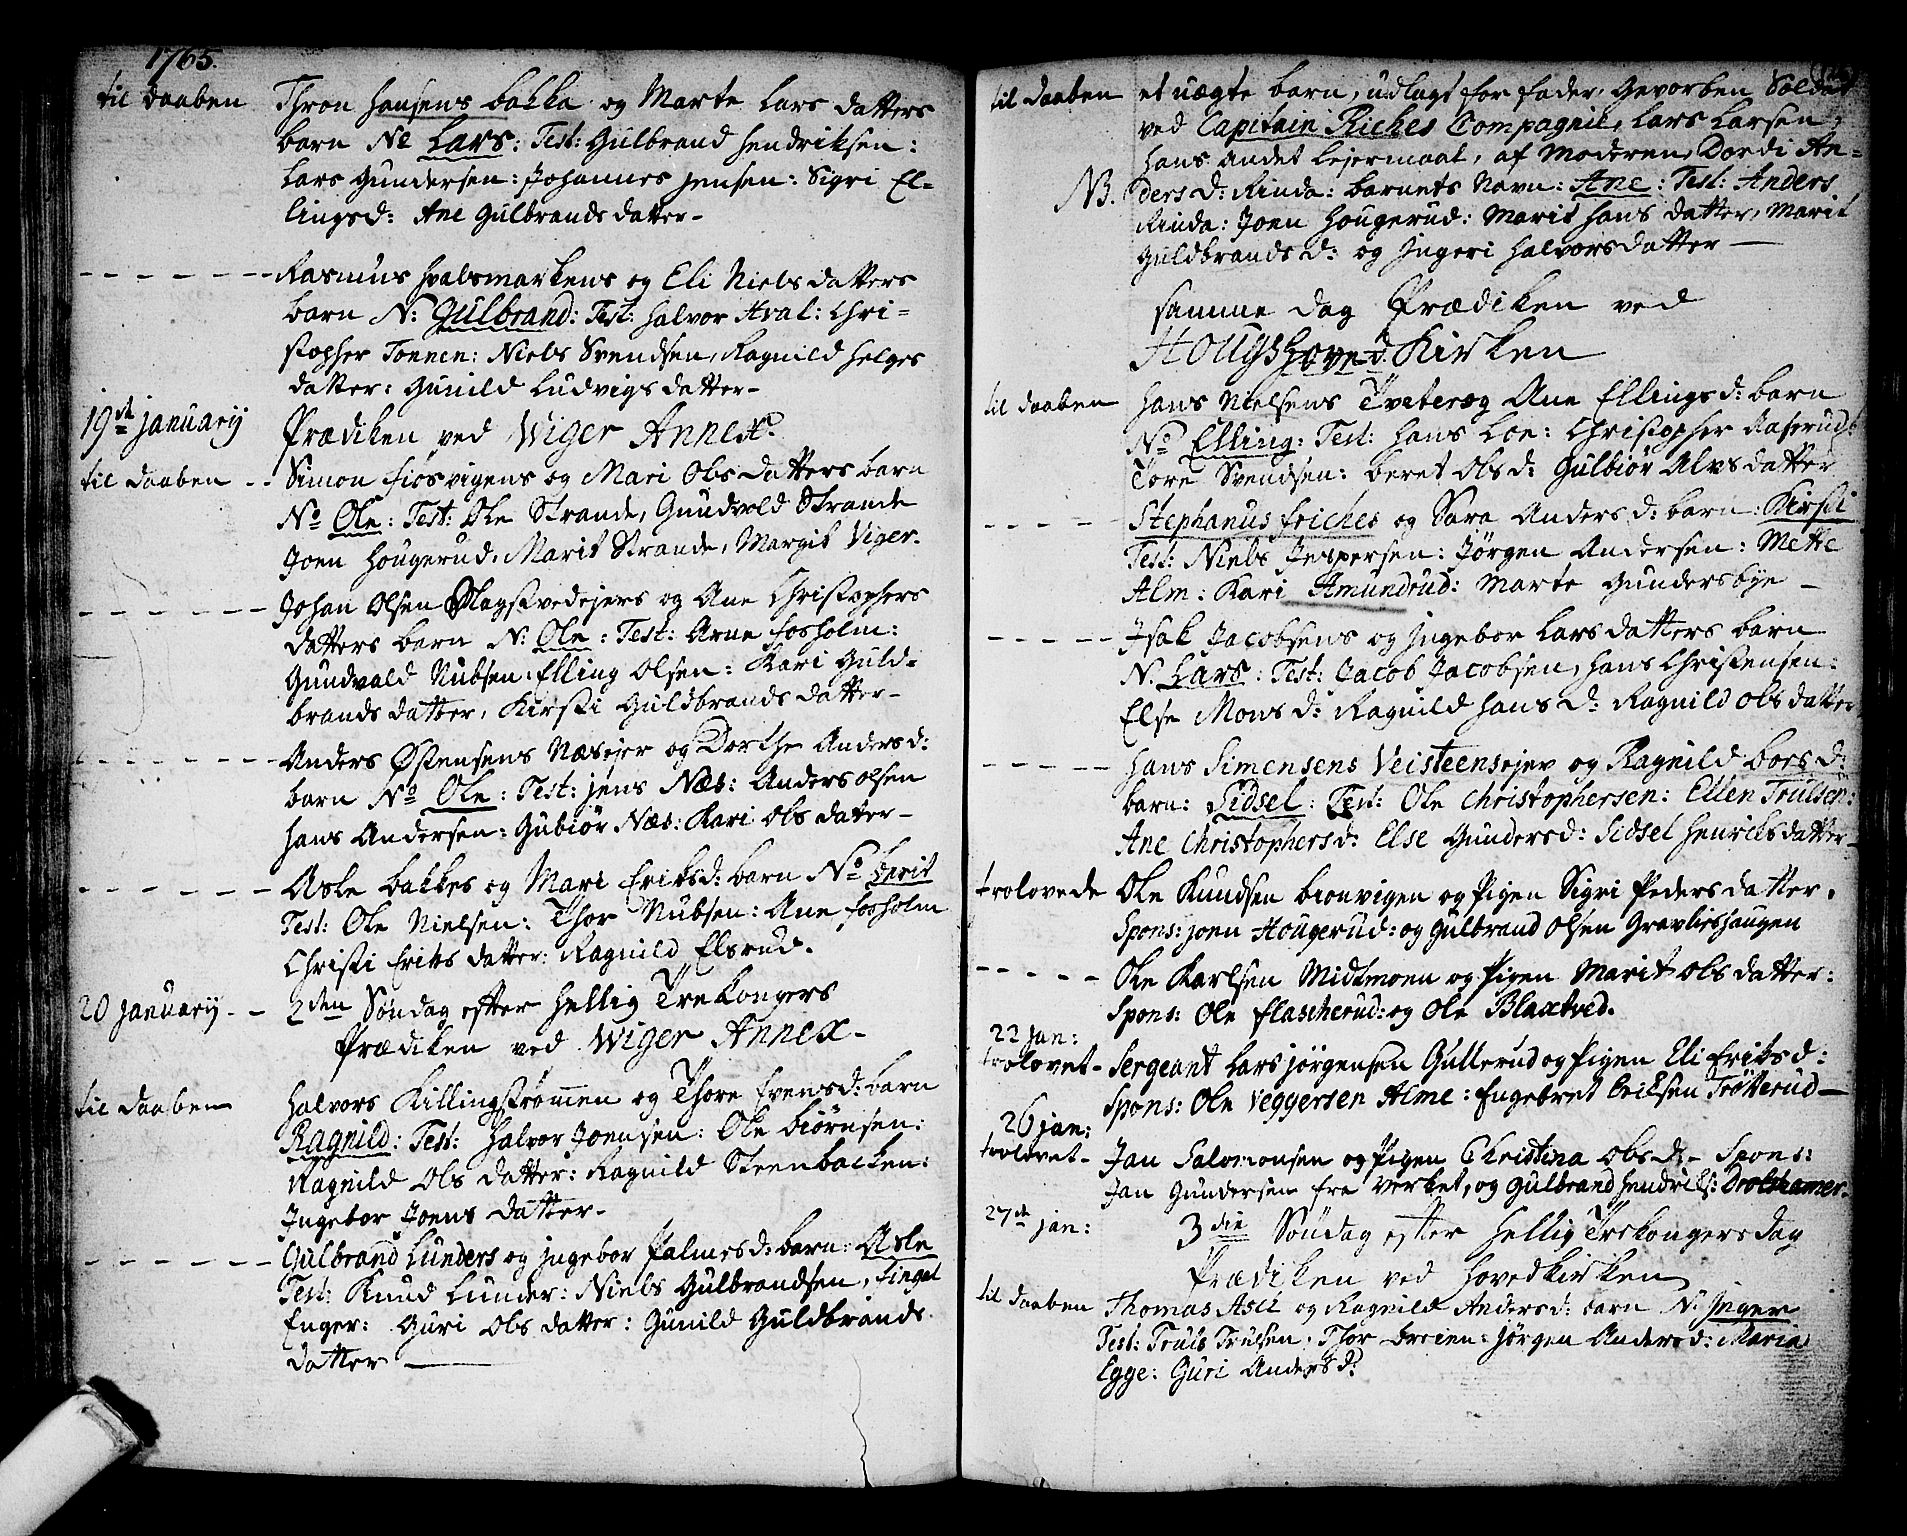 1765.
til Daaben Thron Hansens Bakka og Marte Lars datters
barn Ne Lars: Test: Gulbrand Hendriksen:
Lars Gundersen: Johannes Jensen: Sigri El-
lingsd: Ane Gulbrands datter-
Rasmus Hvalsmarkens og Eli Niels datters
barn N: Gulbrand: Test: Halvor Hval: Chri-
stopher Tonnen: Niels Svendsen, Ragnild Helges
datter: Gunild Ludvigs datter-
19de Januarij Prædiken ved Wiger Annex.
til Daaben - - Simon Fiosvigens og Mari Ols datters barn
No Ole: Test: Ole Strande, Gundvold Strande
Joen Hougerud, Marit Strande, Margit Viger.
Johan Olsen Magstvedejers og Ane Christophers
datters barn N: Ole: Test: Arne Fosholm:
Gundvald Nubsen: Elling Olsen: Kari Guld-
brands datter, Kirsti Guldbrands datter-
Anders Østensens Næsejer og Dorthe Anders d:
barn No Ole: Test: Jens Næs: Anders Olsen
Hans Andersen: Gubiør Næs: Kari Ols datter-
Asle Bakkes og Mari Eriksd: barn No Berit
Test: Ole Nielsen: Thor Nubsen: Ane Fosholm
Christi Eriks datter: Ragnild Elsrud.
20 Januarij - - 2den Søndag efter Hellig Tre Kongers
Prædiken ved Wiger Annex-
til Daaben Halvors Killingstrømmen og Thore Evensd: barn
Ragnild: Test: Halvor Joensen: Ole Biørnsen:
Ragnild Ols datter: Ragnild Steenbacken:
Ingebor Joens datter-
Gulbrand Lunders og Ingebor Palmesd: barn: Asle
Test: Knud Lunder: Niels Gulbrandsen, Fingal
Enger: Guri Ols datter: Gunild Guldbrands
datter
til Daaben et uægte barn, udlagt for fader, Gevorben Soldat
ved Capitain Riches Compagnie, Lars Larsen,
Hans andet Lejermaal, af Moderen, Dordi An-
NB. ders d: Rinda: barnets Navn: Ane: Test: Anders
Rinda: Joen Hougerud: Marit Hans datter, Marit
Guldbrands d: og Ingeri Halvors datter
samme dag Prædiken ved
Hougshoved Kirken
til Daaben Hans Nielsens Tveter og Ane Ellingsd: barn
No Elling: Test: Hans Loe: Christopher Raserud:
Tore Svendsen: Beret Ols d: Gulbiør Alvs datter
Stephanus Friches og Sara Anders d: barn: Kirsti
Test: Niels Jespersen: Jørgen Andersen: Mette
Alm: Kari Amundrud: Marte Gundersbye
Isak Jacobsens og Ingebor Lars datters barn
N. Lars: Test: Jacob Jacobsen, Hans Christensen:
Else Mons d: Ragnild Hans d: Ragnild Ols datter
Hans Simensens Veisteensejer og Ragnild Boes d:
barn: Sidsel: Test: Ole Christophersen: Ellen Trulsen:
Ane Christophersd: Else Gundersd: Sidsel Henrichsdatter
trolovede Ole Knudsen Bionvigen og Pigen Sigri Peders datter.
Spons: Joen Hougerud: og Gulbrand Olsen Gravlieshaugen
Ole Karlsen Midtmoen og Pigen Marit Ols datter:
Spons: Ole Flascherud: og Ole Blaxtved.
22 Jan:
trolovet- Sergeant Lars Jörgensen Gullerud og Pigen Eli Eriks d:
Spons: Ole Veggersen Alme: Engebret Erilsen Trötterud
26 Jan:
trolovet- Jan Salomonsen og Pigen Christina Ols d- Spons:
Jan Gundersen fra Verket, og Gulbrand Hendriks: Drolshamer.
27de Jan: 3die Søndag efter Hellig Trekongers dag
Prædiken ved Hovedkirken
til Daaben Thomas Asli og Ragnild Anders d: barn N. Inger
Test: Truls Trulsen, Thor Breien: Jørgen Anders d: Maria
Egge: Guri Anders d: